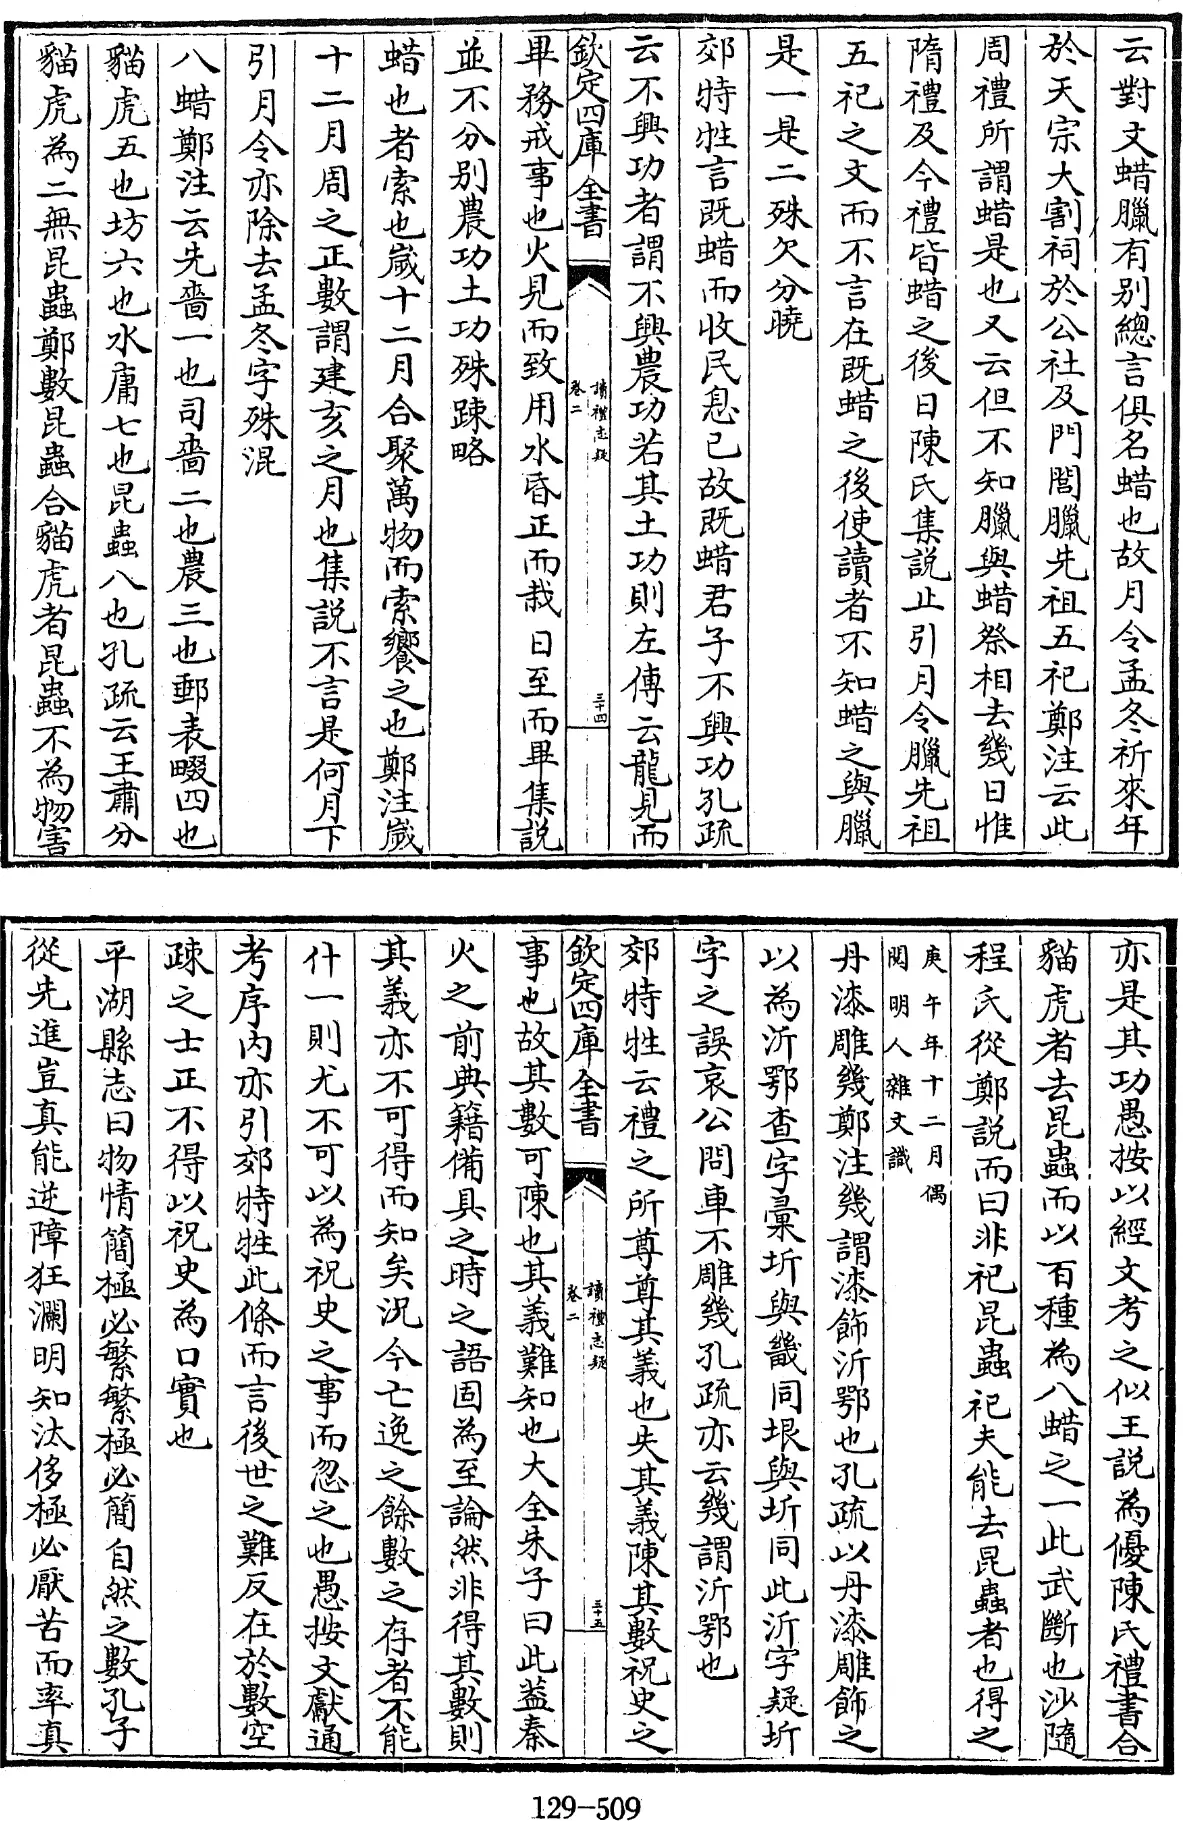 云對文蜡臘有别總言俱名蜡也故月令孟冬祈來年
於天宗大割祠於公社及門閭臘先祖五祀鄭注云此
周禮所謂蜡是也又云但不知臘與蜡祭相去幾日惟
隋禮及今禮皆蜡之後日陳氏集説止引月令臘先祖
五祀之文而不言在既蜡之後使讀者不知蜡之與臘
是一是二殊欠分曉
郊特牲言既蜡而收民息已故既蜡君子不興功孔疏
云不興功者謂不興農功若其土功則左傳云龍見而
欽定四庫全書
讀禮志疑
卷二
三十四
畢務戒事也火見而致用水昏正而栽日至而畢集説
並不分别農功土功殊踈略
蜡也者索也嵗十二月合聚萬物而索饗之也鄭注嵗
十二月周之正數謂建亥之月也集説不言是何月下
引月令亦除去孟冬字殊混
八蜡鄭注云先嗇一也司嗇二也農三也郵表畷四也
貓虎五也坊六也水庸七也昆蟲八也孔疏云王肅分
貓虎為二無昆蟲鄭數昆蟲合貓虎者昆蟲不為物害
亦是其功愚按以經文考之似王説為優陳氏禮書合
貓虎者去昆蟲而以百種為八蜡之一此武斷也沙隨
程氏從鄭説而曰非祀昆蟲祀夫能去昆蟲者也得之
庚午年十二月偶
閱明人雜文識
丹漆雕幾鄭注幾謂漆飾沂鄂也孔疏以丹漆雕飾之
以為沂鄂查字彙圻與畿同垠與圻同此沂字疑圻
字之誤哀公問車不雕幾孔疏亦云幾謂沂鄂也
郊特牲云禮之所尊尊其義也失其義陳其數祝史之
欽定四庫全書
讀禮志疑
卷二
三十五
事也故其數可陳也其義難知也大全朱子曰此蓋秦
火之前典籍備具之時之語固為至論然非得其數則
其義亦不可得而知矣况今亡逸之餘數之存者不能
什一則尤不可以為祝史之事而忽之也愚按文獻通
考序内亦引郊特牲此條而言後世之難反在於數空
疎之士正不得以祝史為口實也
平湖縣志曰物情簡極必繁繁極必簡自然之數孔子
從先進豈真能逆障狂瀾明知汰侈極必厭苦而率真
129-509